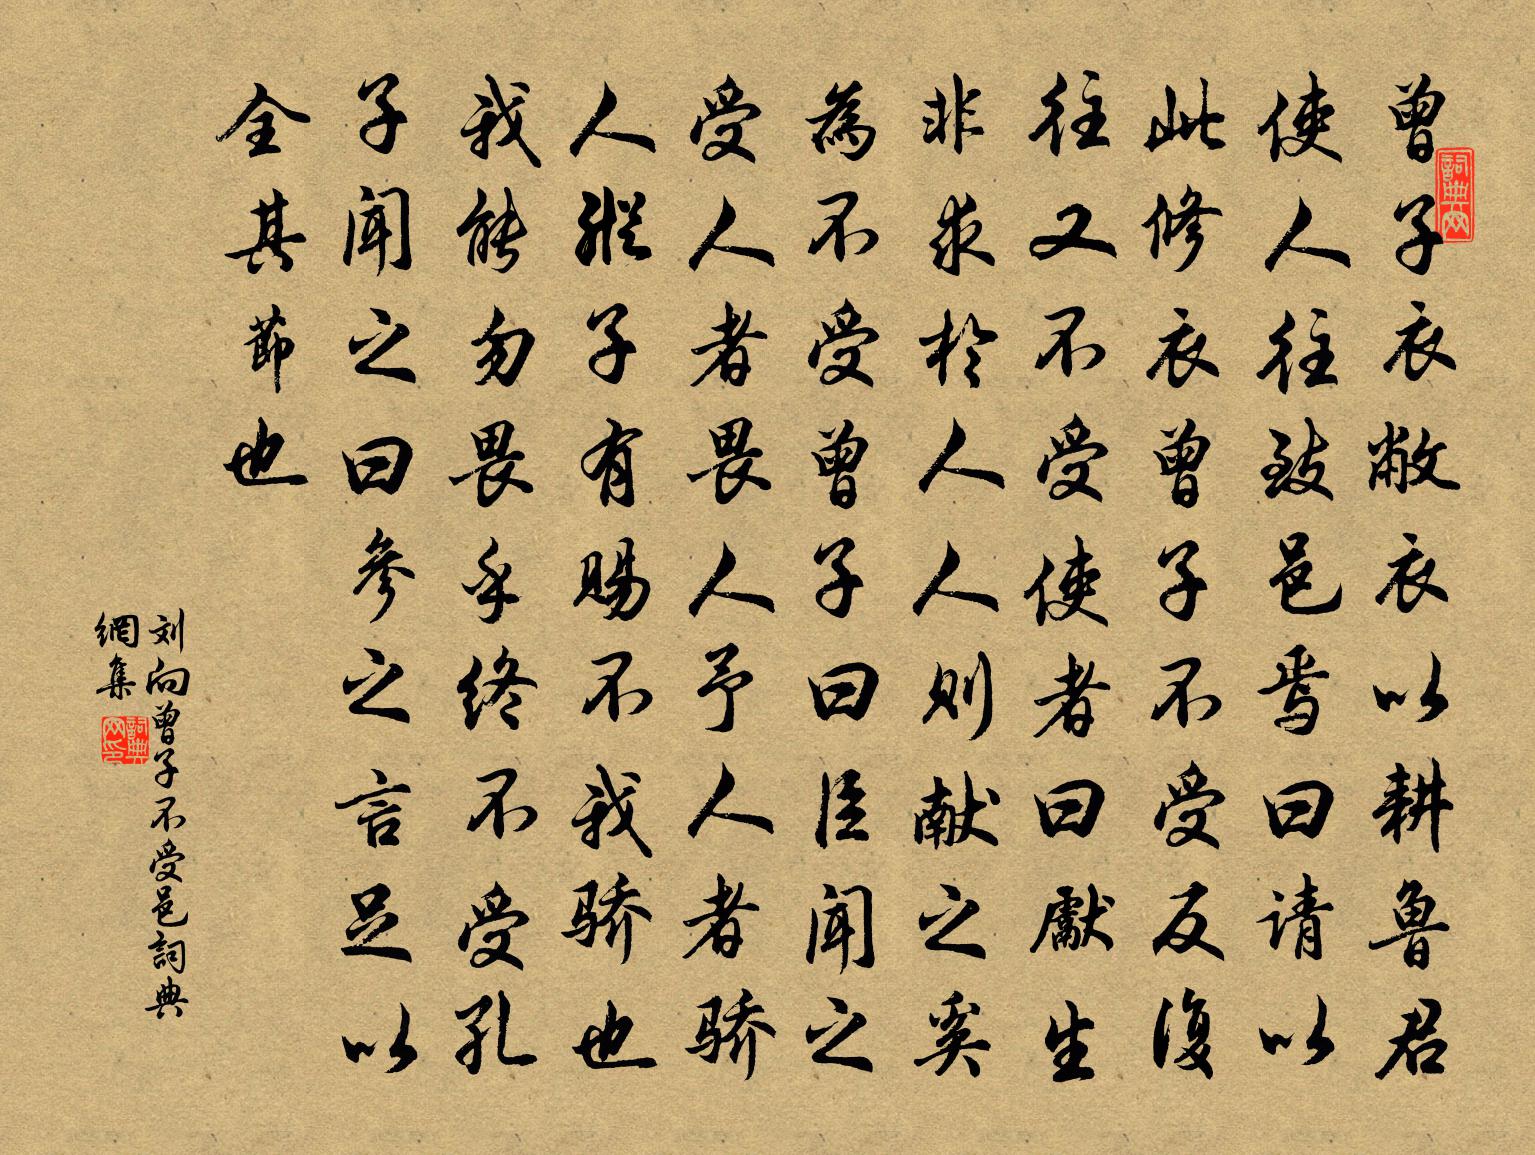 曾子衣敝衣以耕鲁君
使人往致邑焉曰请以
此修衣曾子不受反復
往又不受使者曰獻生
非求於人人则献之奚
為不受曾子曰臣闻之
受人者畏人予人者骄
人縱子有赐不我骄也
我能勿畏乎终不受孔
子闻之曰参之言足以
全其節也
刘向曾子不受邑詞典
網集
詞典网
詞典网印